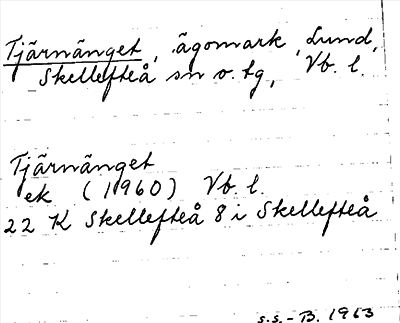 Tjärnänget, ägomark, Lund,
Skellefteå sn o. tg, Vb. l.
Tjärnänget
ek (1960) Vb. l.
22 K Skellefteå 8 i Skellefteå
s.s. - B. 1963